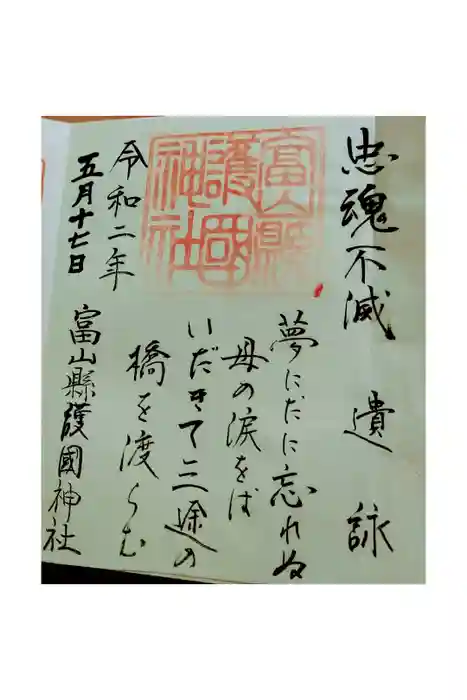 忠魂不滅
遺詠
夢にだに忘れぬ
母の涙をば
いだきて三途の
橋を渡らむ
富山縣
護國
神社
令和二年
五月十七日
富山縣護國神社